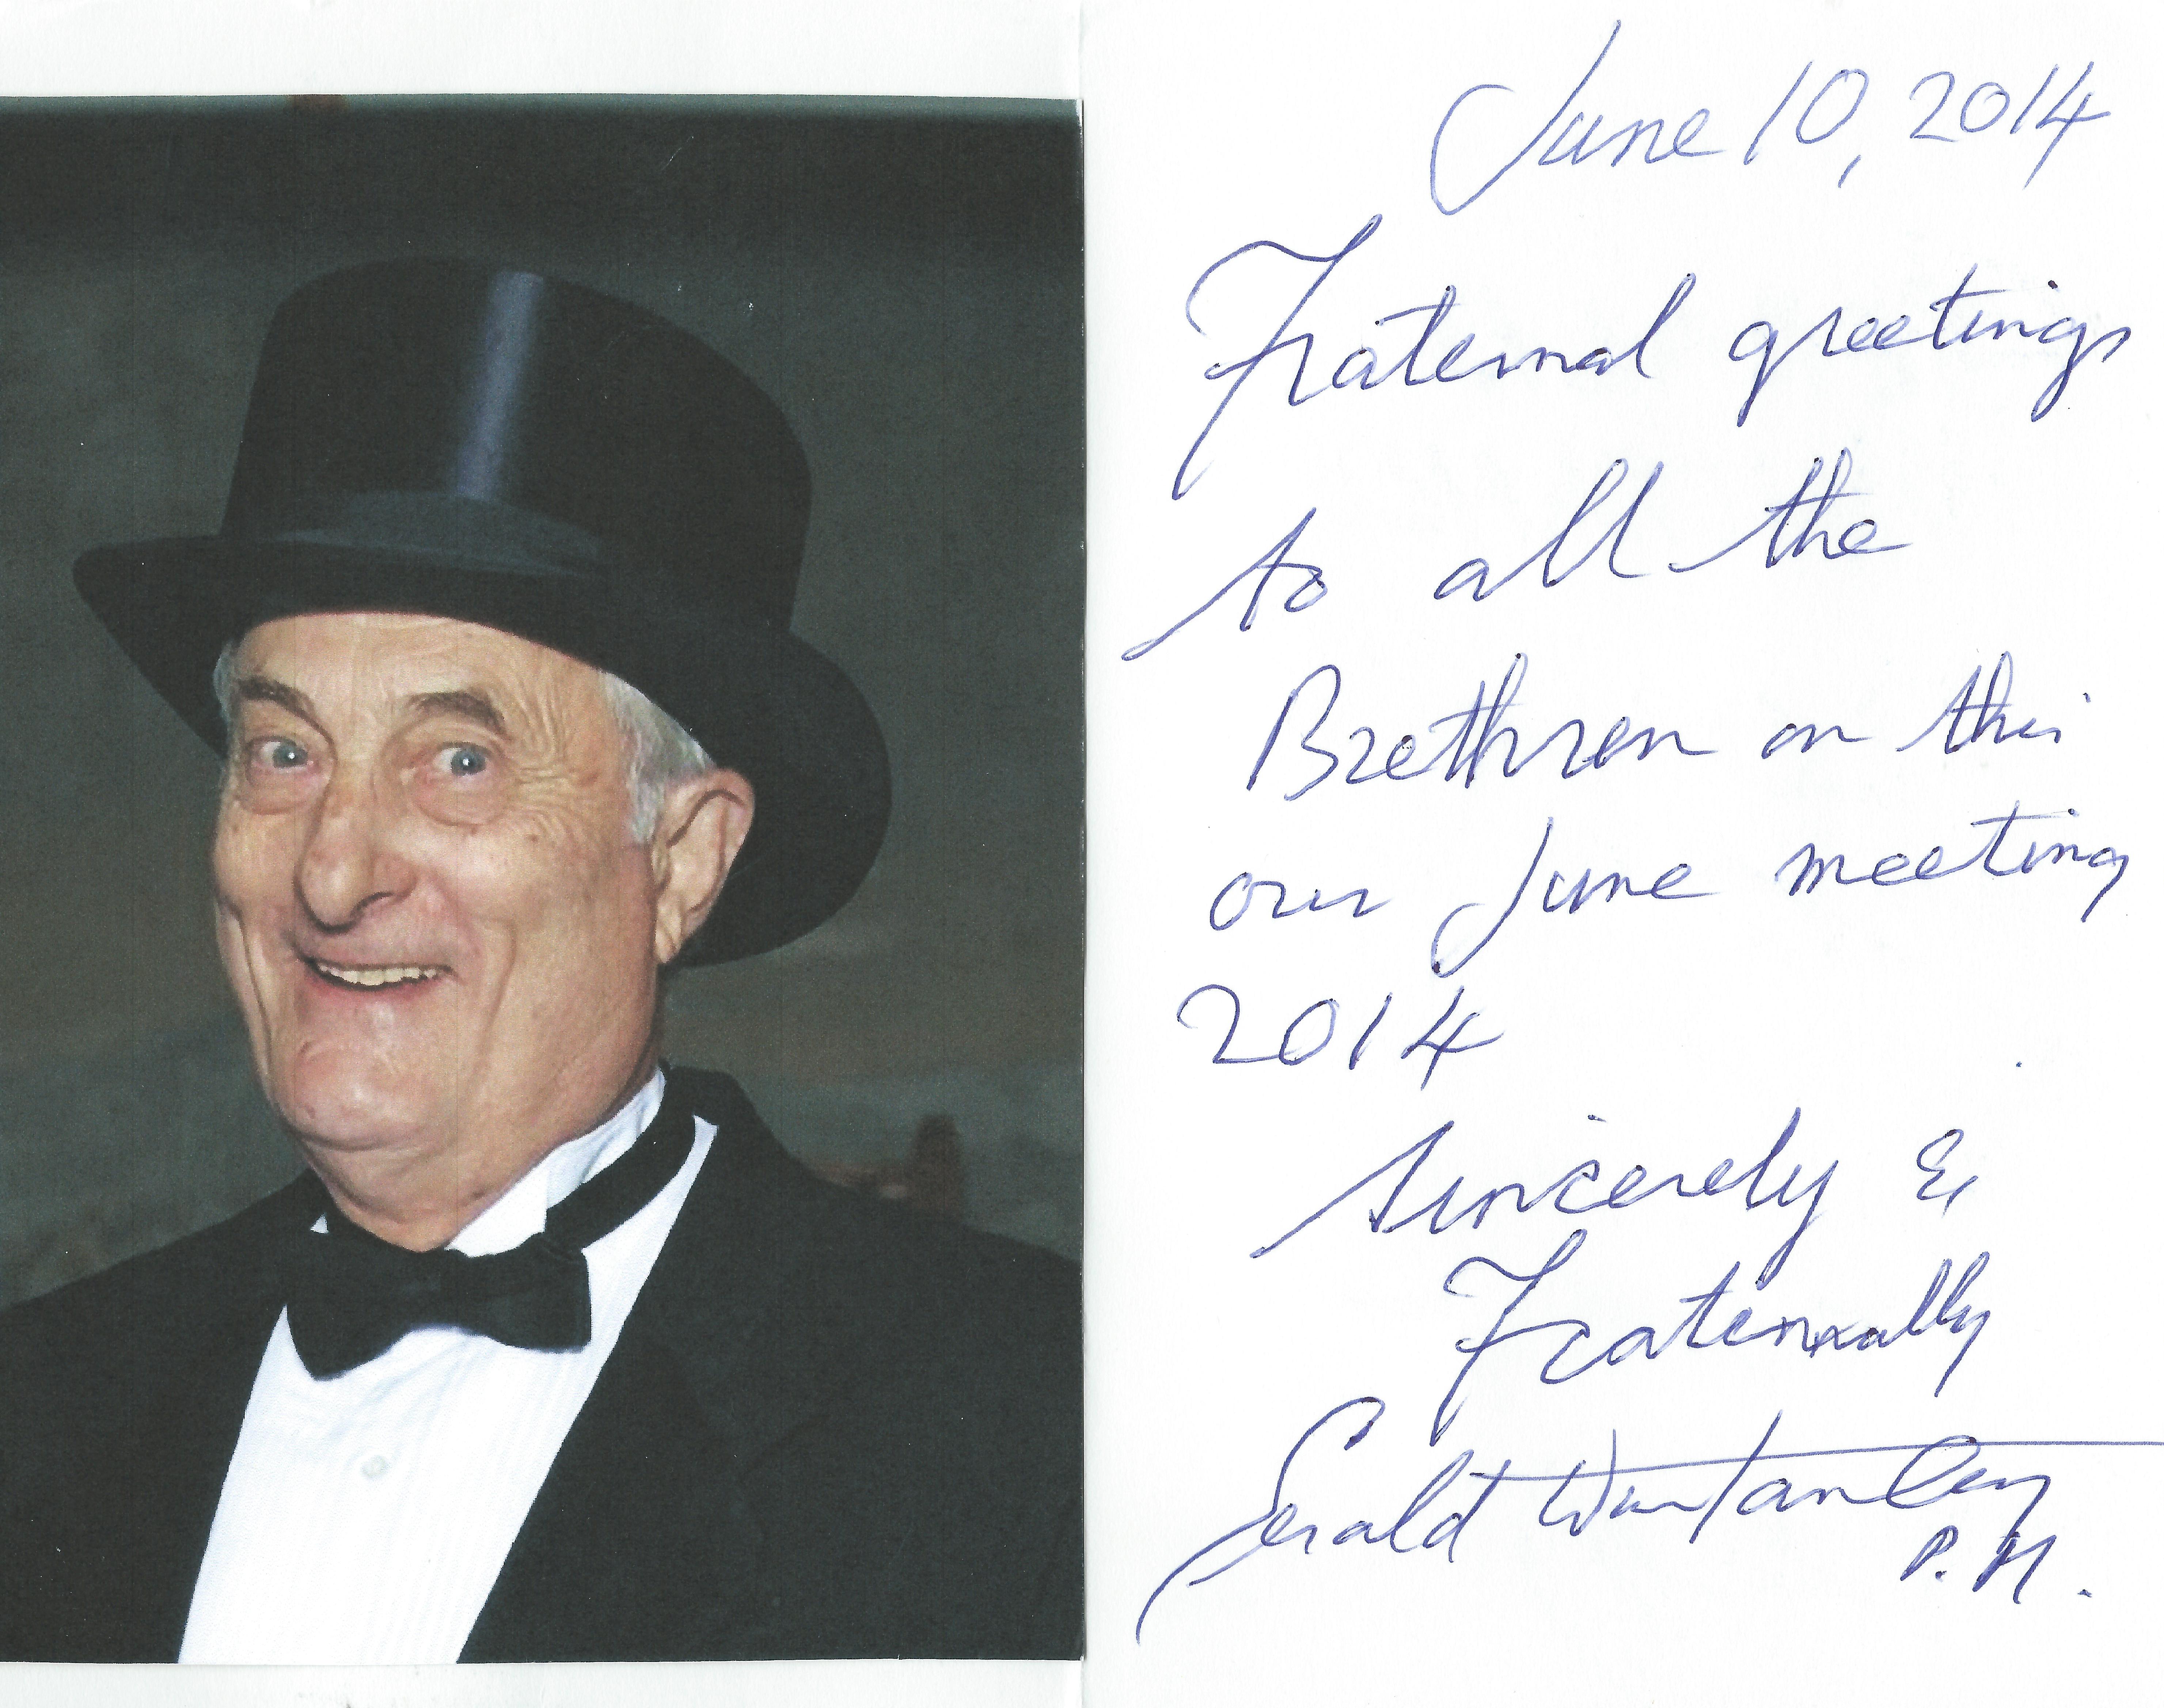 June 10, 2014
Fraternal greetings
to all the
Brethren on this
our June meeting
2014
Sincerely &
Fraternally
Gerald Winstanley
P.M.